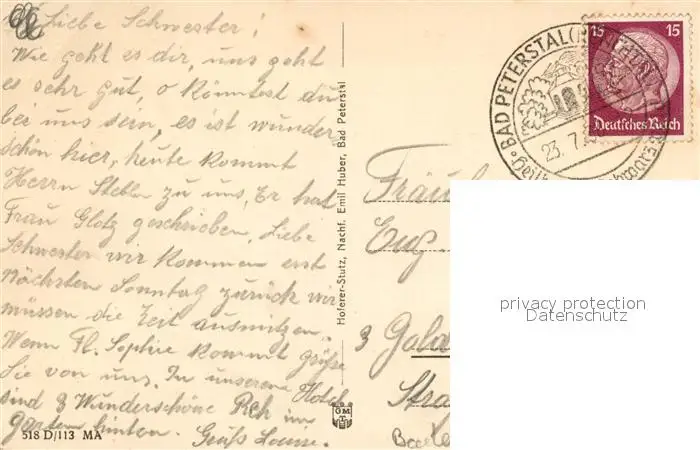 Liebe Schwester!
Wie geht es dir, uns geht
es sehr gut, o könntest du
bei uns sein, es ist wunder
schön hier, heute kommt
Herrn Stehlin zu uns, Er hat
Frau Glotz geschrieben, Liebe
Schwester wir kommen erst
nächsten Sonntag zurück wir
müssen die Zeit ausnutzen.
Wenn Fl. Sophie kommt grüße
Sie von uns. In unserem Hotel
sind 8 Wunderschöne Reh im
garten hinten. Grüß Louise.
518 D/113 MA
Hoferer-Stutz, Nachf. Emil Huber, Bad Peterstal
BAD PETERSTAL
23. 7.
15 15
Deutsches Reich
Fräul
Eug
3 Gold
Stra
Bade
privacy protection
Datenschutz